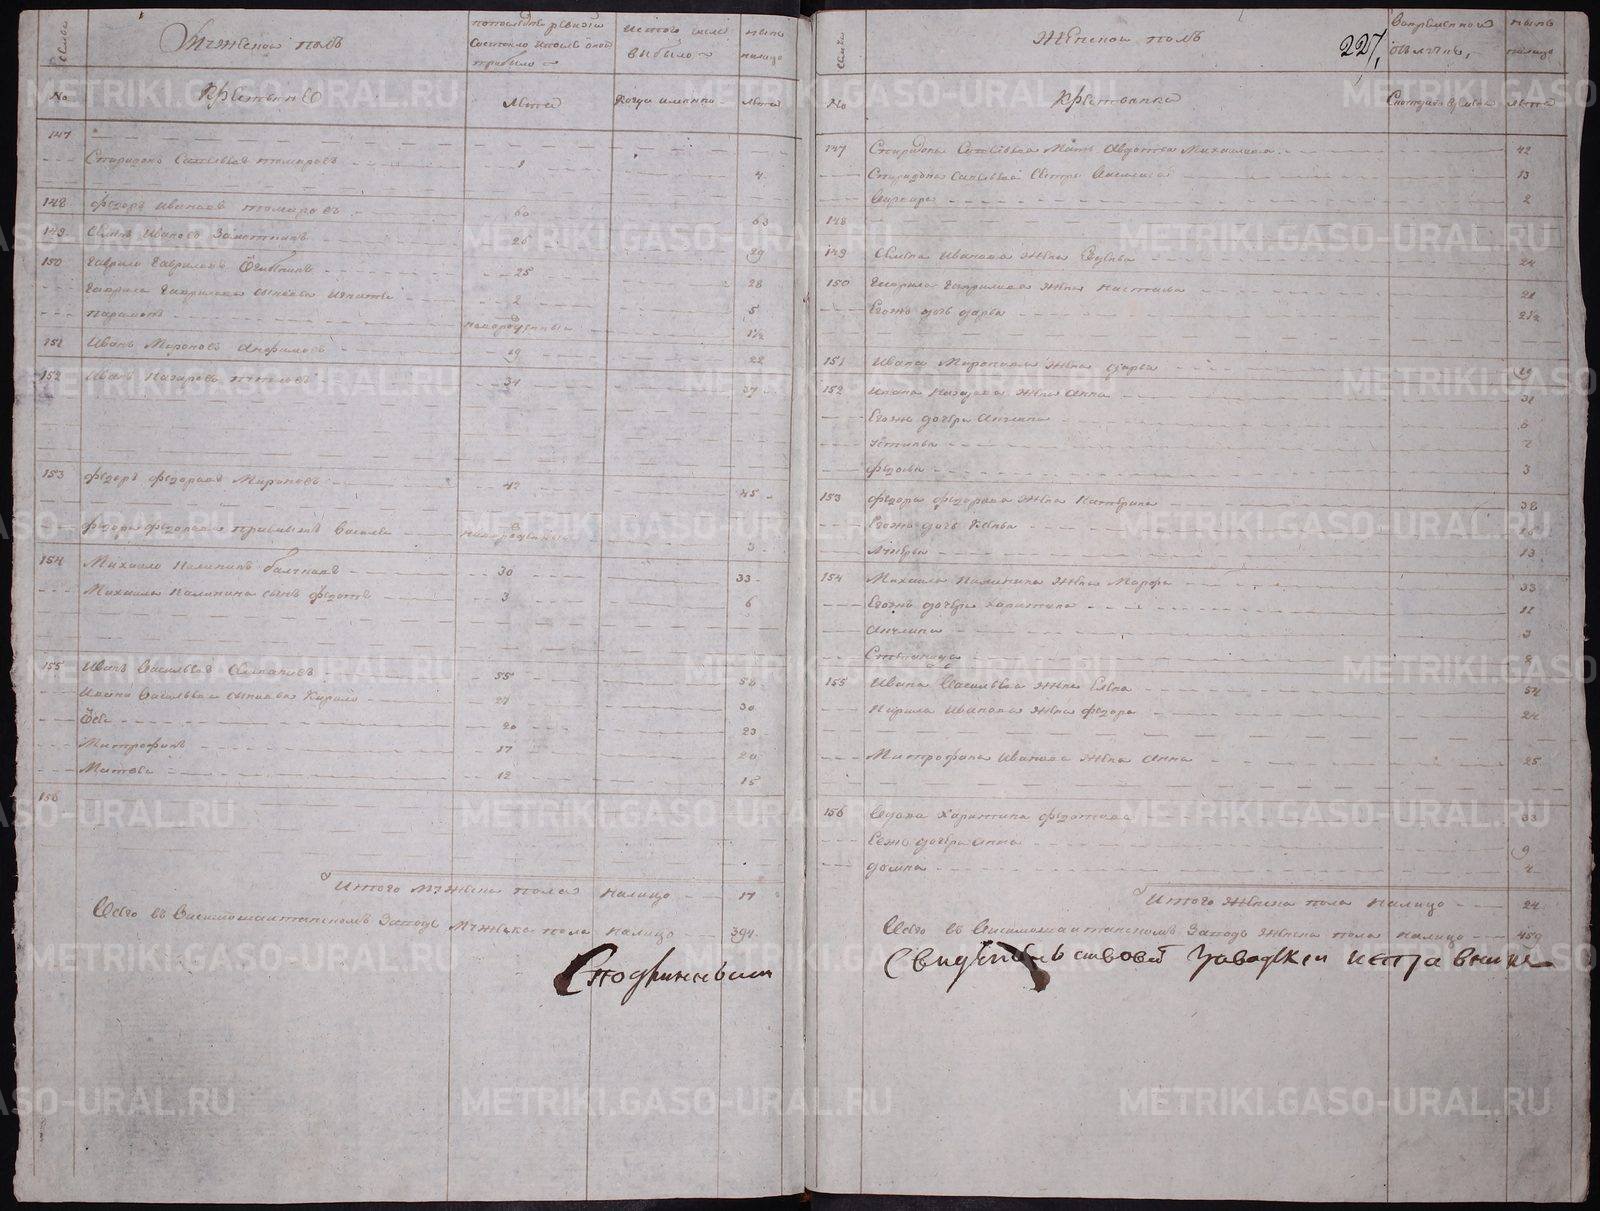 семьи
Мужеской полъ
попоследней ревизіи
состояло и после оной
прибыло
изтого числа
выбыло
ныне
налицо
No
Крестьяне
лета
когда именно
лета
147
Спиридонъ Савельевъ томаровъ 1 4
148 Федоръ Ивановъ томаровъ 60 63
149 Семенъ Ивановъ 26 29
150 Гаврило Гавриловъ 25 28
Гаврила Гаврилова сыновья Игнатей 2 5
Парамонъ новорожденны 1½
151 Иванъ Мироновъ Анфимовъ 19 22
152 Иванъ Назаровъ 34 37
153 Федоръ Федоровъ Мироновъ 42 45
Федора Федорова приемышъ Василей новорожденны 3
154 Михайло Калининъ 30 33
Михаила Калинина сынъ Федотъ 3 6
155 Иванъ Васильевъ 55 58
Ивана Васильева сыновья Кирило 27 30
20 23
Митрофанъ 17 20
Матвей 12 15
156
Итого мужеска пола налицо 17
Всего въ Висимошайтанскомъ Заводе мужеска пола налицо 394
Сподлиннымъ
семьи
Женской полъ
227
Вовременной
отлучке,
ныне
налицо
No
Крестьянка
Скотораго времени
лета
147 Спиридона Савельева Мать Авдотья Михайлова 42
Спиридона Савельева Сестры Василиса 13
Варвара 2
148
149 Семена Иванова жена 24
150 Гаврила Гаврилова жена Настасья 21
Егожъ дочь Дарья 2½
151 Ивана Миронова жена Дарья 19
152 Ивана Назарова жена Анна 31
Егожъ дочери Ангелина 8
Устинья 7
Федосья 3
153 Федора Федорова жена Катерина 38
Егожъ дочь 16
13
154 Михаила Калинина жена Марфа 33
Егожъ дочери Харитина 11
Ангелина 3
Степанида
155 Ивана Васильева жена Елена 54
Кирила Иванова жена Федора 24
Митрофана Иванова жена Анна 25
156 Вдова Харитина Федотова 33
Еежъ дочери Анна 9
Домна 4
Итого женска пола налицо 24
Всего въ Висимошайтанскомъ Заводе женска пола налицо 459
Свидетельствовал Заводской исправникъ
METRIKI.GASO-URAL.RU